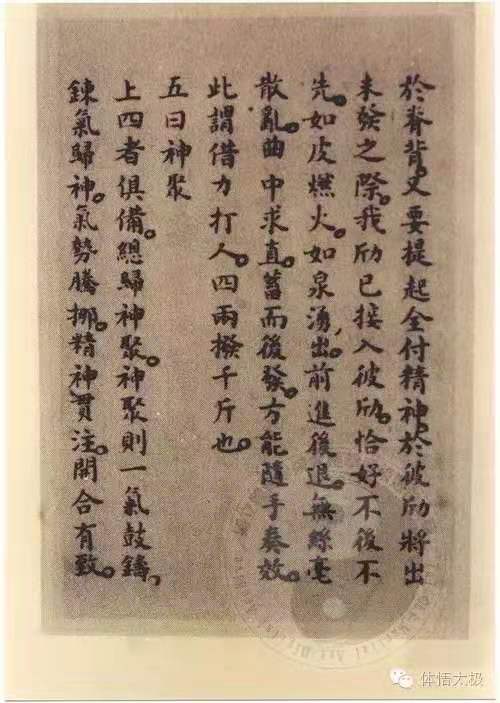 於脊背又要提起全付精神於彼劤將出
未發之際我劤已接入彼劤恰好不後不
先。如皮燃火。如泉湧出。前進後退。無絲毫
散亂。曲中求直。蓄而後發。方能隨手奏效。
此謂借力打人。四兩撥千斤也。
五曰神聚
上四者俱備。總歸神聚。神聚則一氣鼓鑄、
鍊氣歸神。氣勢騰挪。精神貫注。開合有致。
体悟太极